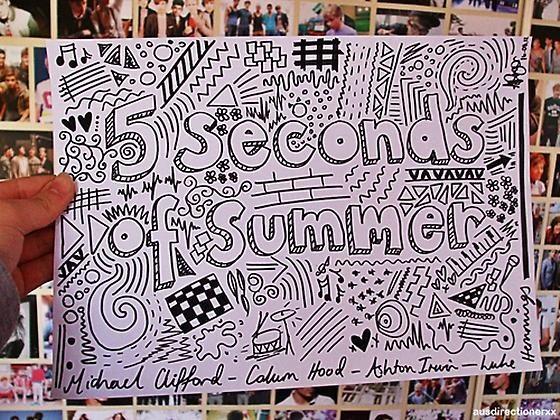 5 seconds
of summer
Michael Clifford - Calum Hood - Ashton Irwin - Luke Hemmings
ausdirectionerxx